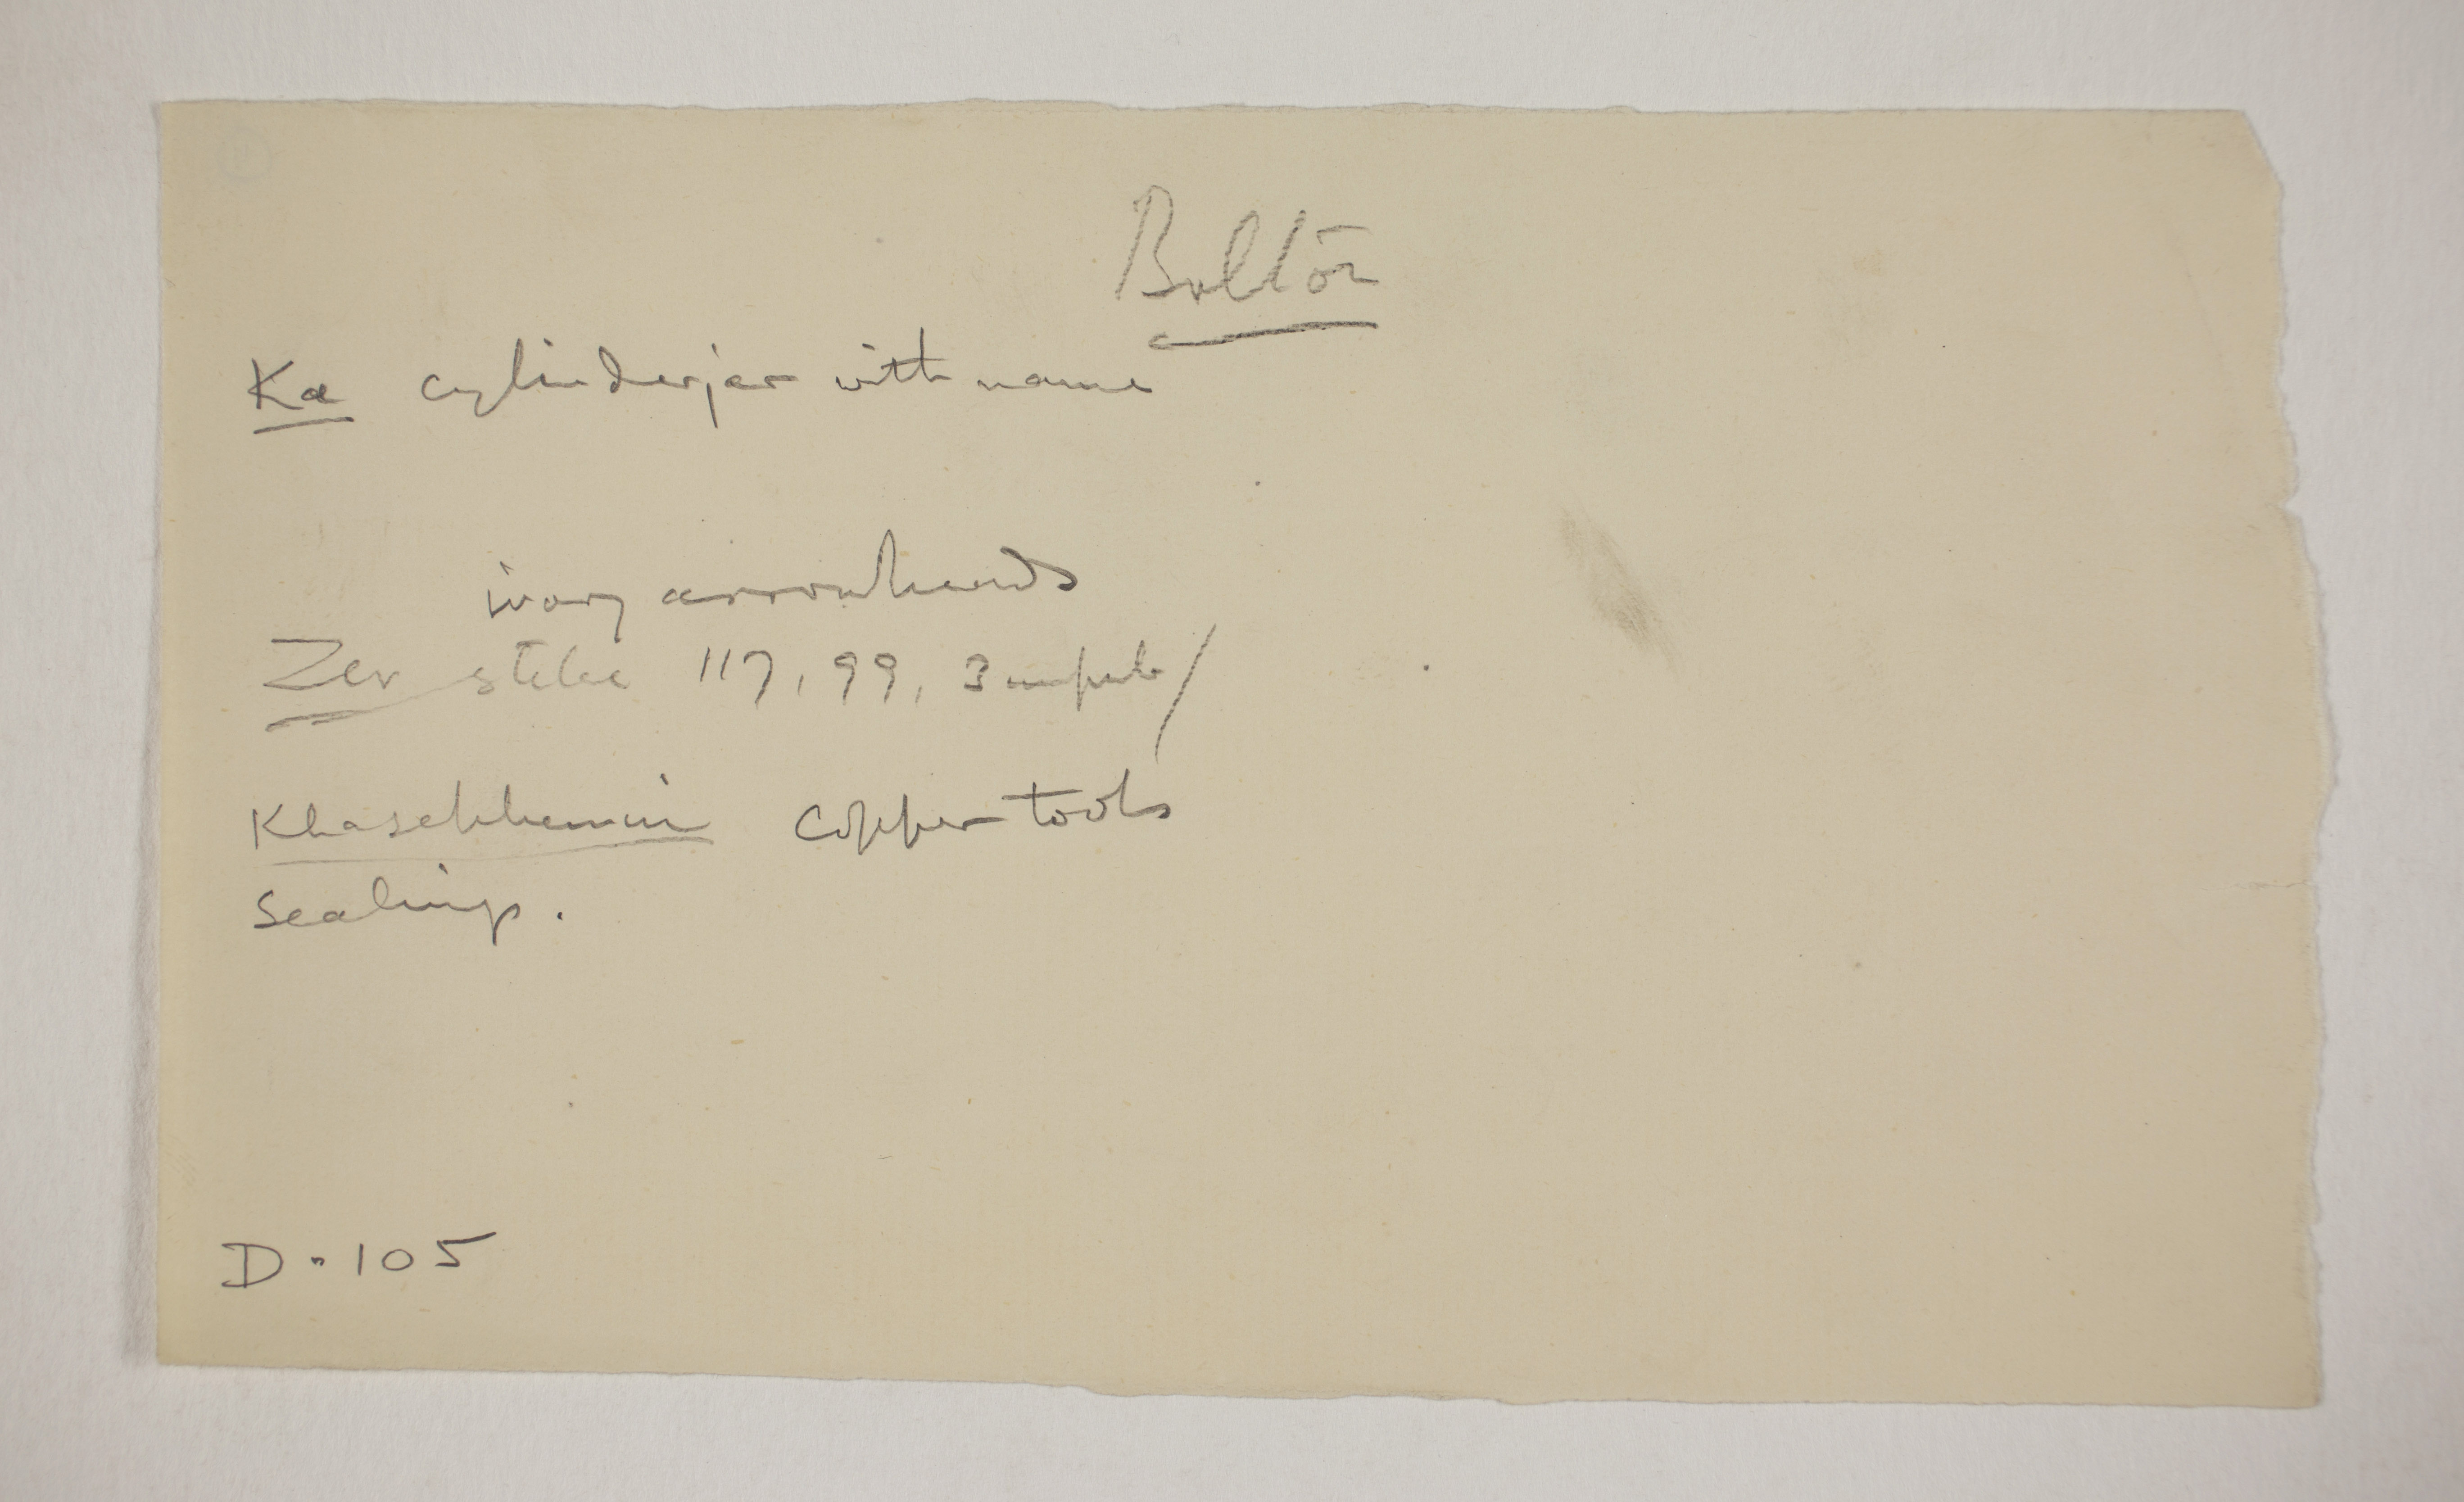 Bolton
Ka cylinder jar with name
ivory arrowheads
Zer stelae 117, 99, 3 unpub/
Khasekhemui copper tools
sealings.
D.105